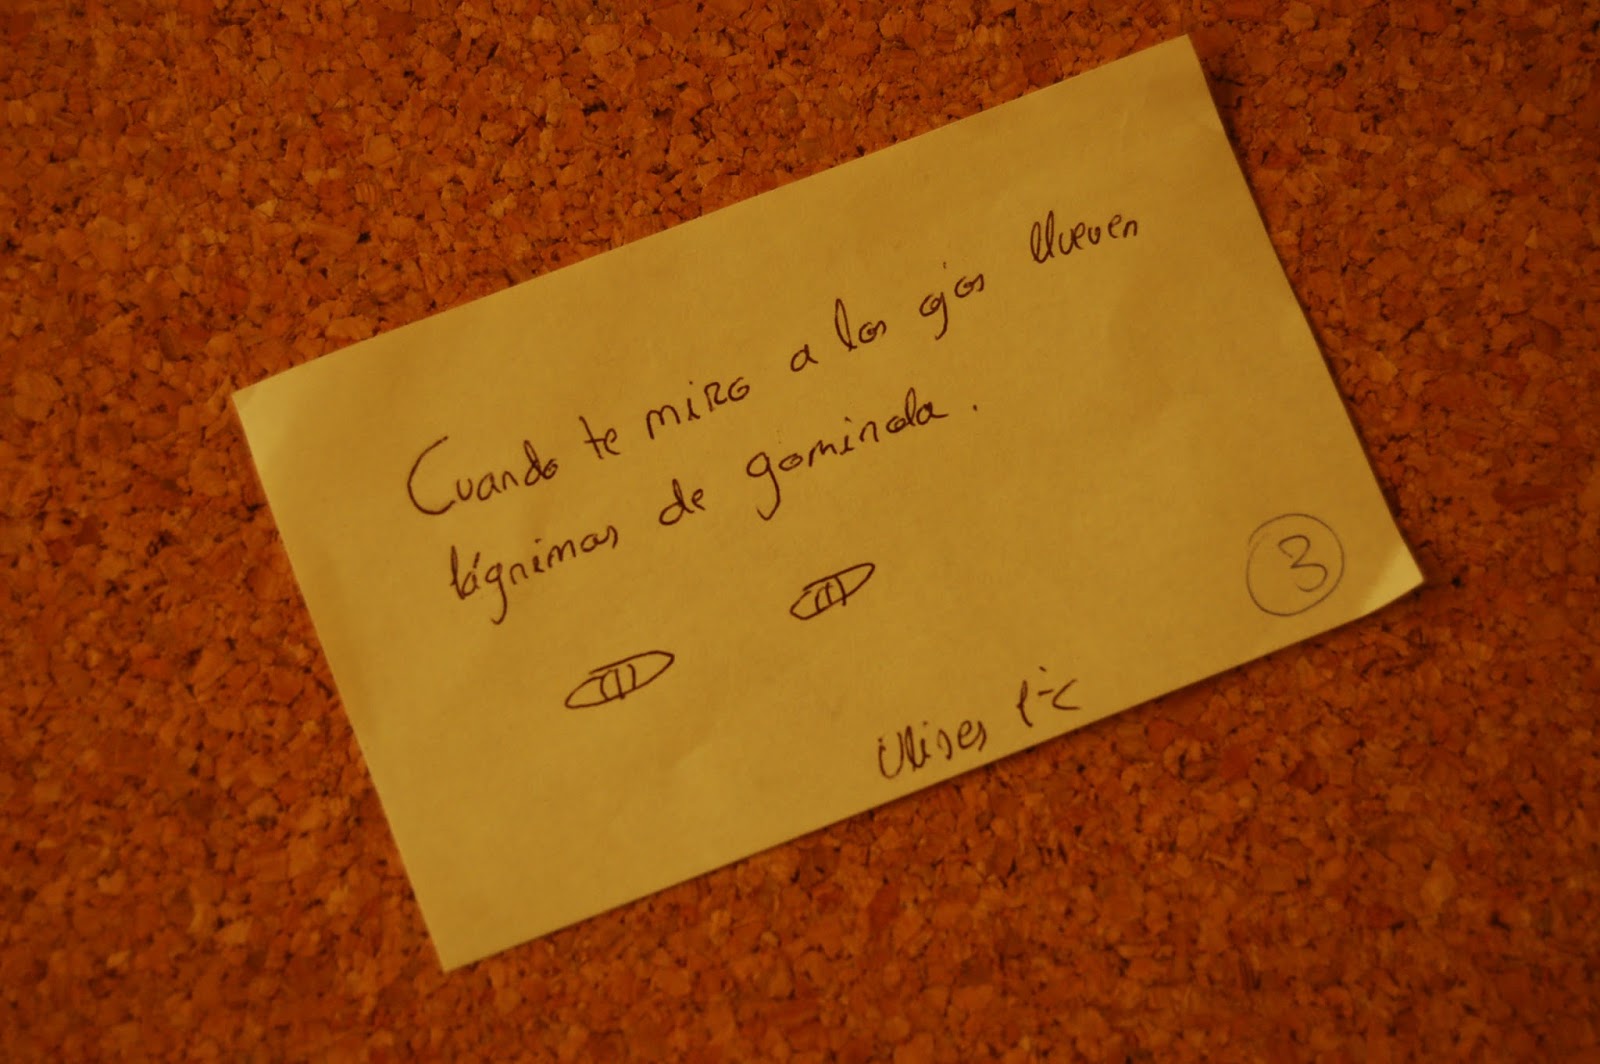 Cuando te miro a los ojos llueven
lágrimas de gominola.
3
Ulises P-C